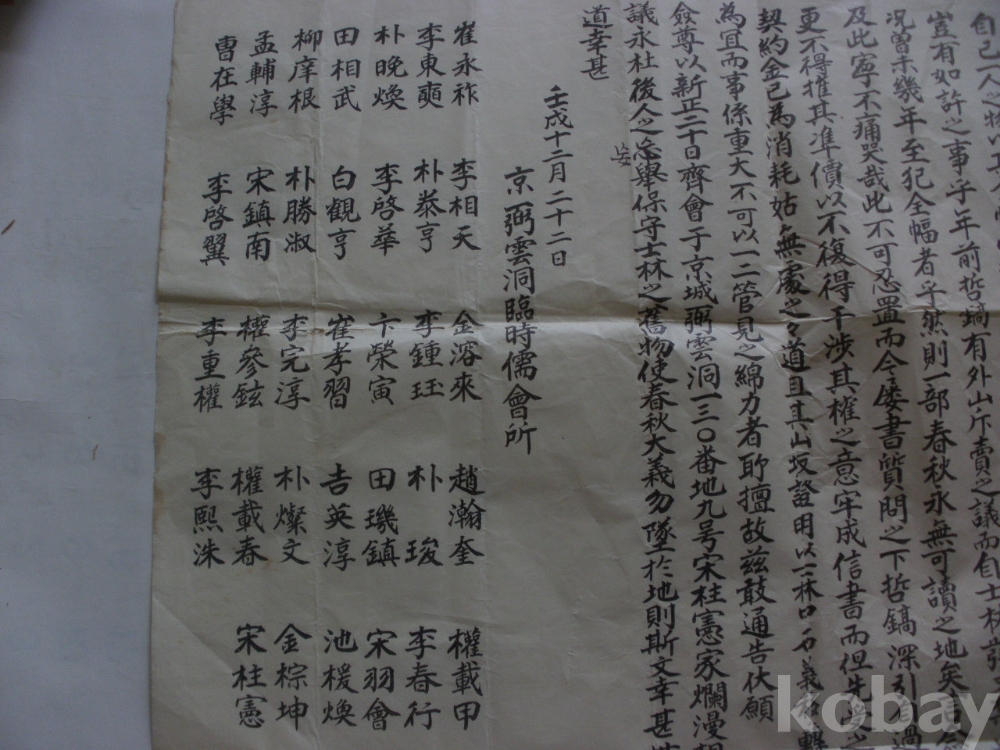 自己一人之物
豈有如許之事乎年前哲埇有外山斥賣之議而自士林
況曾未幾年至犯全幅者乎然則一部春秋永無可讀之地矣
及此寧不痛哭哉此不可忍置而今以書質問之下哲鎬深引
更不得推其準價以不復得干涉其權之意牢成信書而但先
契約金已為消耗姑無處之之道且其山坂證明以二林口石義
為冝而事係重大不可以一二管見之綿力者耶擅故玆敢通告伏願
僉尊以新正二十日齊會于京城弼雲洞一三〇番地九号宋柱憲家爛漫
議永杜後人之忘擧保守士林之舊物使春秋大義勿墜於地則斯文幸甚
妄
道幸甚
壬戌十二月二十二日
京弼雲洞臨時儒會所
崔永祚 李相天 金溶來 趙瀚奎 權載甲
李東奭 朴泰亨 李鍾珏 朴 琁 李春行
朴晚煥 李啓華 卞榮寅 田璣鎮 宋羽會
田相武 白觀亨 崔孝習 吉英淳 池楥煥
柳庠根 朴勝淑 李完淳 朴燦文 金棕坤
孟輔淳 宋鎮南 權參鉉 權載春 宋柱憲
曺在學 李啓翼 李重權 李熙洙
kobay